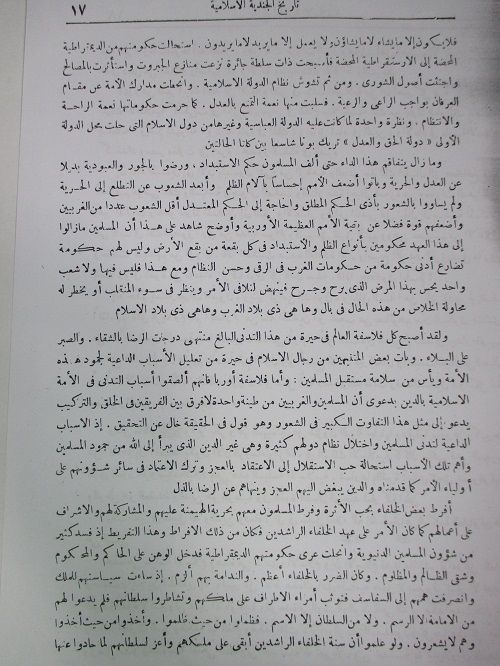 تاريخ الجندية الاسلامية ١٧
فلا يكون إلا مايشاء لا مايشاؤن ولا يعمل إلا ما يريد لا ما يريدون . استحالت حكومتهم من الديمقراطية
المحضة إلى الارستقراطية المحضة فأصبحت ذات سلطة جائرة نزعت منازع الجبروت واستأثرت بالمصالح
واجتثت أصول الشورى . ومن ثم تشوش نظام الدولة الاسلامية . وانحطت مدارك الأمة عن مقام
العرفان بواجب الراعى والرعية . فسلبت منها نعمة التمتع بالعدل . كما حرمت حكوماتها نعمة الراحة
والانتظام . ونظرة واحدة لما كانت عليه الدولة العباسية وغيرها من دول الاسلام التى حلت محل الدولة
الأولى « دولة الحق والعدل » تريك بونا شاسعا بين كلتا الحالتين
وما زال يتفاقم هذا الداء حتى ألف المسلمون حكم الاستبداد . ورضوا بالجور والعبودية بديلا
عن العدل والحرية وباتوا أضعف الأمم إحساسا بآلام الظلم وأبعد الشعوب عن التطلع إلى الحرية
ولم يساووا بالشعور بأذى الحكم المطلق والحاجة إلى الحكم المعتدل أقل الشعوب عددا من الغربيين
وأضعفهم قوة فضلا عن بقية الأمم العظيمة الأوربية وأوضح شاهد على هذا أن المسلمين مازالوا
إلى هذا العهد محكومين بأنواع الظلم والاستبداد فى كل بقعة من بقع الأرض وليس لهم حكومة
تضارع أدنى حكومة من حكومات الغرب فى الرقى وحسن النظام ومع هذا فليس فيها ولا شعب
واحد يحس بهذا المرض الذى برح وجرح فينهض لتلافى الأمر وينظر فى سوء المنقلب أو يخطر له
محاولة الخلاص من هذه الحال فى بال وها هى ذى بلاد الغرب وهاهى ذى بلاد الاسلام
ولقد أصبح كل فلاسفة العالم فى حيرة من هذا التدنى البالغ منتهى درجت الرضا بالشقاء . والصبر
على البلاء . وبات بعض المتنبهين من رجال الاسلام فى حيرة من تعليل الأسباب الداعية لجمود هذه
الأمة ويأس من سلامة مستقبل المسلمين : وأما فلاسفة أوربا فانهم ألصقوا أسباب التدنى فى الأمة
الاسلامية بالدين بدعوى أن المسلمين والغربيين من طينة واحدة لافرق بين الفريقين فى الخلق والتركيب
يدعو إلى مثل هذا التفاوت الكبير فى الشعور وهو قول فى الحقيقة خال عن التحقيق . إذ الاسباب
الداعية لتدنى المسلمين واختلال نظام دولهم كثيرة وهى غير الدين الذى يبرأ إلى الله من جمود المسلمين
وأهم تلك الأسباب استحالة حب الاستقلال إلى الاعتقاد بالعجز وترك الاعتماد فى سائر شؤونهم على
أولياء الأمر كما قدمناه والدين يبغض اليهم العجز وينهاهم عن الرضا بالذل
أفرط بعض الخلفاء بحب الأثرة وفرط المسلمون معهم بحرية الهيمنة عليهم والمشاركة لهم والاشراف
على أعمالهم كما كان الأمر على عهد الخلفاء الراشدين فكان من ذلك الافراط وهذا التفريط إذ فسد كثير
من شؤون المسلمين الدنيوية وانحلت عرى حكومتهم الديمقراطية فدخل الوهن على الحاكم والمحكوم
وشقى الظالم والمظلوم . وكان الضرر بالخلفاء أعظم . والندامة بهم ألزم . إذ ساءت سياستهم للملك
وانصرفت هممهم إلى السفاسف فتوثب أمراء الاطراف على ملكهم وتشاطروا سلطانهم فلم يدعوا لهم
من الامامة إلا الرسم . ولا من السلطان إلا الاسم . فظلموا من حيث ظلموا . وأخذوا من حيث أخذوا
وهم لا يشعرون . ولو علموا أن سنة الخلفاء الراشدين أبقى على ملكهم وأعز لسلطانهم لما حادوا عنها